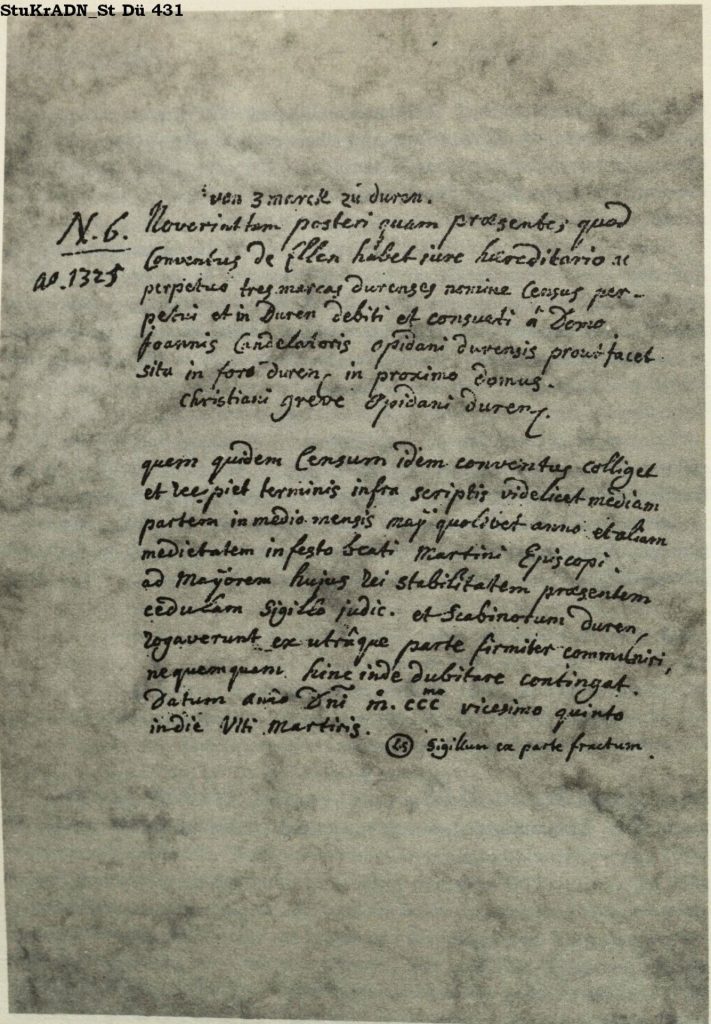 StuKrADN_St Dü 431
von 3 marck zů duren.
N. 6.
ao. 1325
Noverint tam posteri quam præsentes, quod
Conventus de Ellen habet iure hæreditario ac
perpetuo tres marcas durenses nomine Census per-
petui et in Duren debiti et consueti â Domo
Joannis Candelatoris opidani durensis prout jacet
sita in foro duren, in proximo domus.
Christiani greve opidani duren,.
quem quidem Censum idem conventus colliget
et recipiet terminis infra scriptis videlicet mediam
partem in medio mensis maÿ quolibet anno et aliam
medietatem in festo beati Martini Episcopi.
ad Maÿorem hujus rei stabilitatem præsentem
cedulam sigillo judic. et Scabinorum duren,
rogaverunt ex utrâque parte firmiter communiri,
ne quemquam hinc inde dubitare contingat.
Datum anno Dñi m. ccc mo vicesimo quinto
in die Viti Martiris.
LS sigillum ex parte fractum.